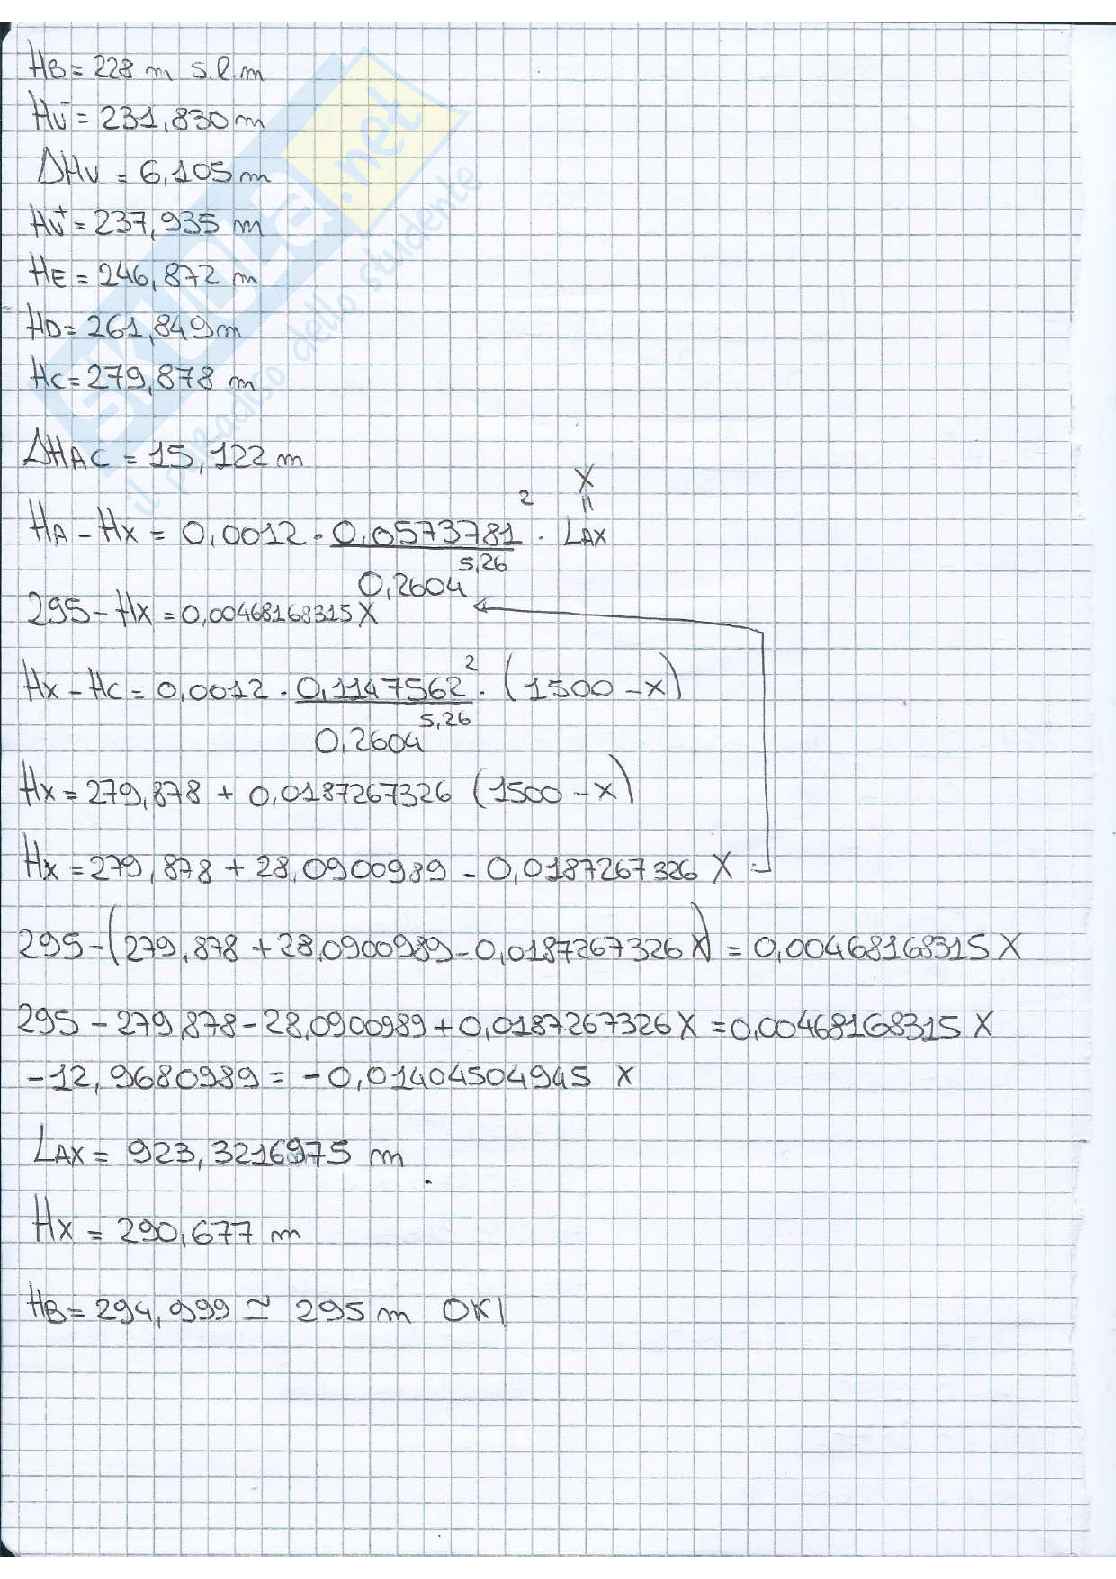 HB = 228 m s.l.m
Hv⁻ = 231,830 m
ΔHv = 6,105 m
Hv⁺ = 237,935 m
HE = 246,872 m
HD = 261,849 m
HC = 279,878 m
ΔHAC = 15,122 m
X
=
HA - HX = 0,0012 · 0,0573781² / 0,2604^5,26 · LAX
295 - HX = 0,00468168315 X
HX - HC = 0,0012 · 0,1147562² / 0,2604^5,26 · (1500 - X)
HX = 279,878 + 0,0187267326 (1500 - X)
HX = 279,878 + 28,0900989 - 0,0187267326 X
295 - (279,878 + 28,0900989 - 0,0187267326 X) = 0,00468168315 X
295 - 279,878 - 28,0900989 + 0,0187267326 X = 0,00468168315 X
-12,9680989 = -0,01404504945 X
LAX = 923,3216975 m
HX = 290,677 m
HB = 294,999 ≃ 295 m OK!
SKUOLA.net
il paradiso dello studente